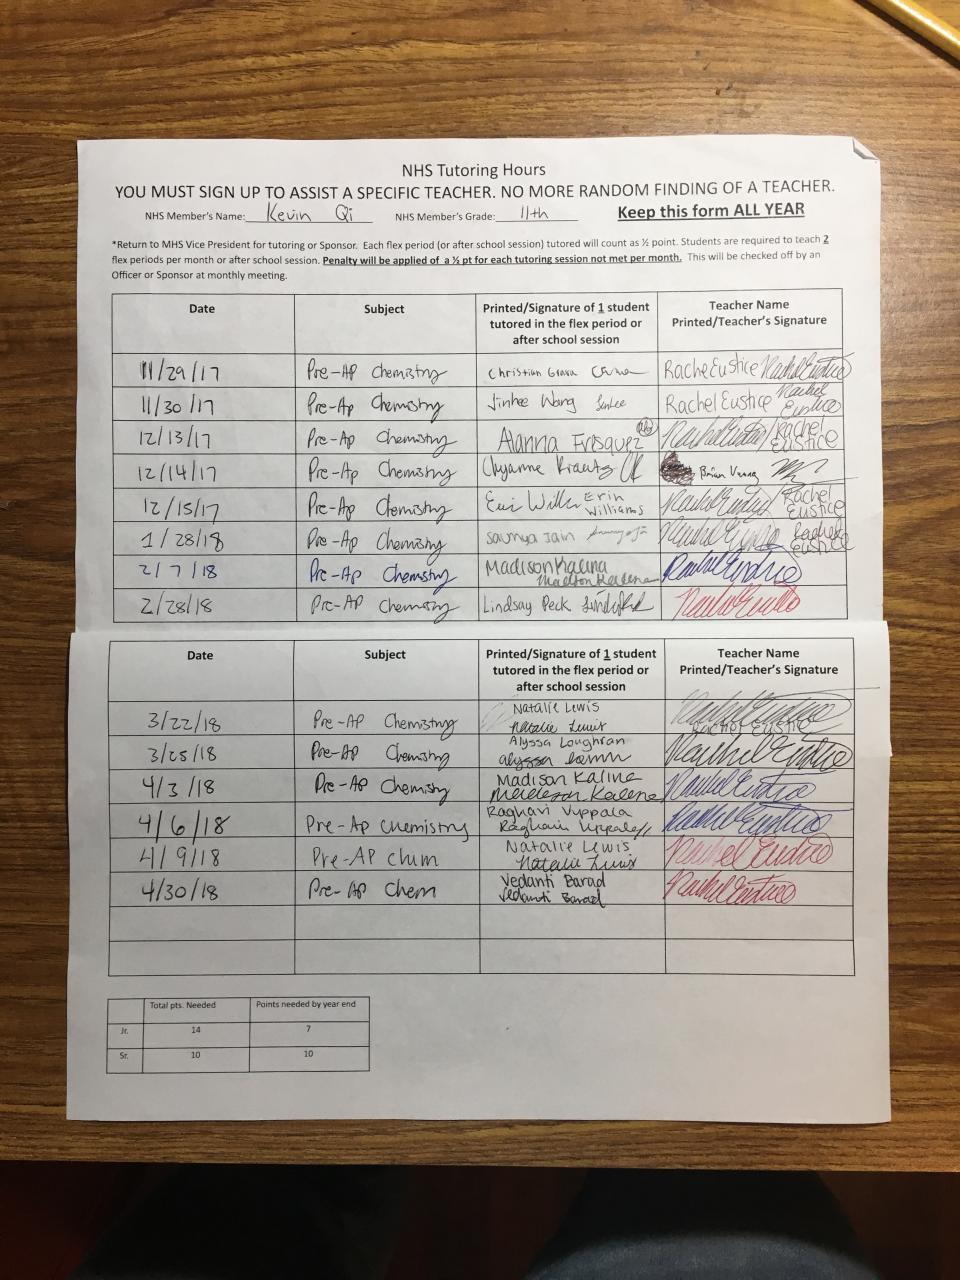 NHS Tutoring Hours
YOU MUST SIGN UP TO ASSIST A SPECIFIC TEACHER. NO MORE RANDOM FINDING OF A TEACHER.
NHS Member's Name: Kevin Qi NHS Member's Grade: 11th Keep this form ALL YEAR
*Return to MHS Vice President for tutoring or Sponsor. Each flex period (or after school session) tutored will count as ½ point. Students are required to teach 2
flex periods per month or after school session. Penalty will be applied of a ½ pt for each tutoring session not met per month. This will be checked off by an
Officer or Sponsor at monthly meeting.
Date Subject Printed/Signature of 1 student tutored in the flex period or after school session Teacher Name Printed/Teacher's Signature
11/29/17 Pre-AP Chemistry Christian Rachel Eustice Rachel Eustice
11/30/17 Pre-Ap Chemistry Jinhee Wang Jinhee Rachel Eustice Rachel Eustice
12/13/17 Pre-Ap Chemistry Alanna Frasquez Rachel Eustice/Rachel Eustice
12/14/17 Pre-AP Chemistry Chyanne Krautz CK Brian
12/15/17 Pre-Ap Chemistry Erin Williams Erin Williams Rachel Eustice/Rachel Eustice
1/28/18 Pre-Ap Chemistry Saumya Jain Rachel Eustice Rachel Eustice
2/7/18 Pre-Ap Chemistry Madison Kalina Madison Kalena Rachel Eustice
2/28/18 Pre-AP Chemistry Lindsay Peck Rachel Eustice
Date Subject Printed/Signature of 1 student tutored in the flex period or after school session Teacher Name Printed/Teacher's Signature
3/22/18 Pre-AP Chemistry Natalie Lewis Natalie Lewis Rachel Eustice Rachel Eustice
3/25/18 Pre-AP Chemistry Alyssa Loughran alyssa Rachel Eustice
4/3/18 Pre-AP Chemistry Madison Kalina Madison Kalena Rachel Eustice
4/6/18 Pre-Ap chemistry Raghavi Vuppala Raghavi Vuppala Rachel Eustice
4/9/18 Pre-AP chem Natalie Lewis Natalie Lewis Rachel Eustice
4/30/18 Pre-AP Chem Vedanti Barad Vedanti Barad Rachel Eustice
Total pts. Needed Points needed by year end
Jr. 14 7
Sr. 10 10